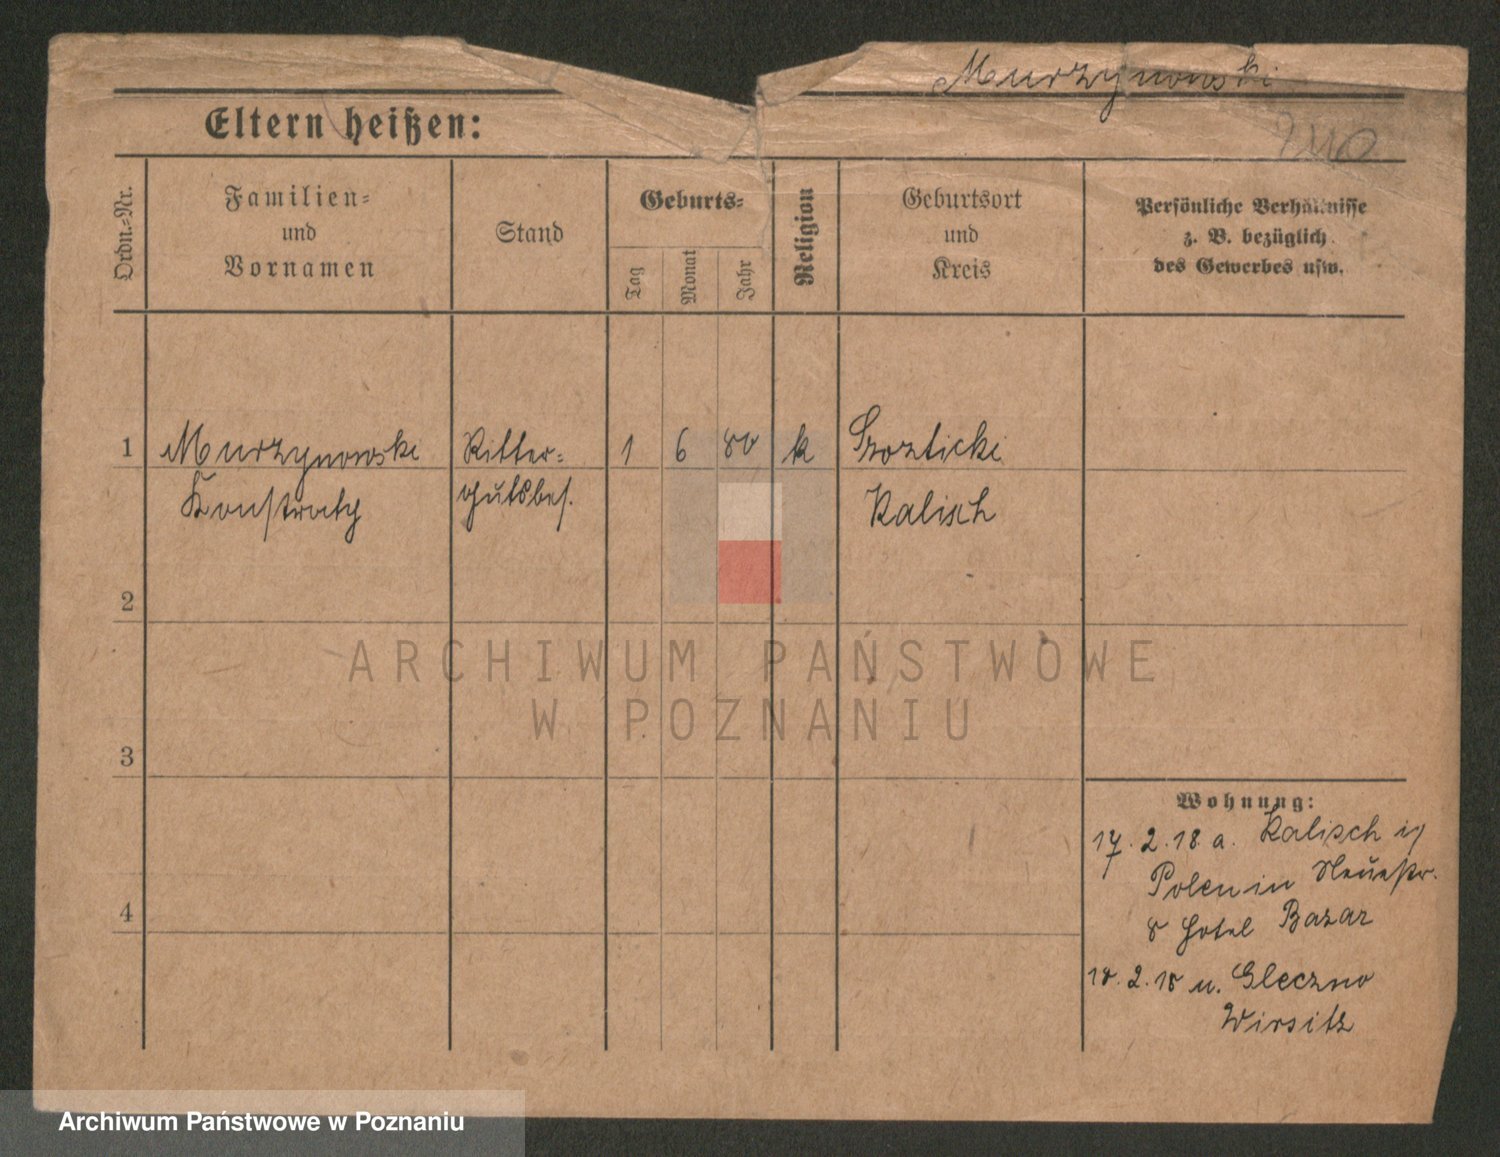 Murzynowski
Eltern heißen:
Ordn.-Nr.
Familien-
und
Vornamen
Stand
Geburts-
Tag
Monat
Jahr
Religion
Geburtsort
und
Kreis
Persönliche Verhältnisse
z. B. bezüglich
des Gewerbes usw.
1 Murzynowski Ritter- 1 6 80 k
gutsbes. Kalisch
2
3
4
Wohnung:
17. 2. 18 a. Kalisch in
Polen in Neuestr.
8 Hotel Bazar
18. 2. 18 n. Gleczno
Wirsitz
ARCHIWUM PAŃSTWOWE
W POZNANIU
Archiwum Państwowe w Poznaniu